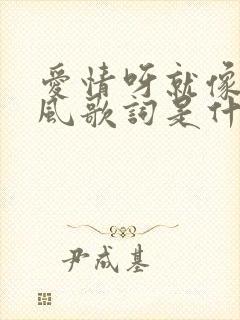 愛情呀就像
風歌詞是什
尹成基